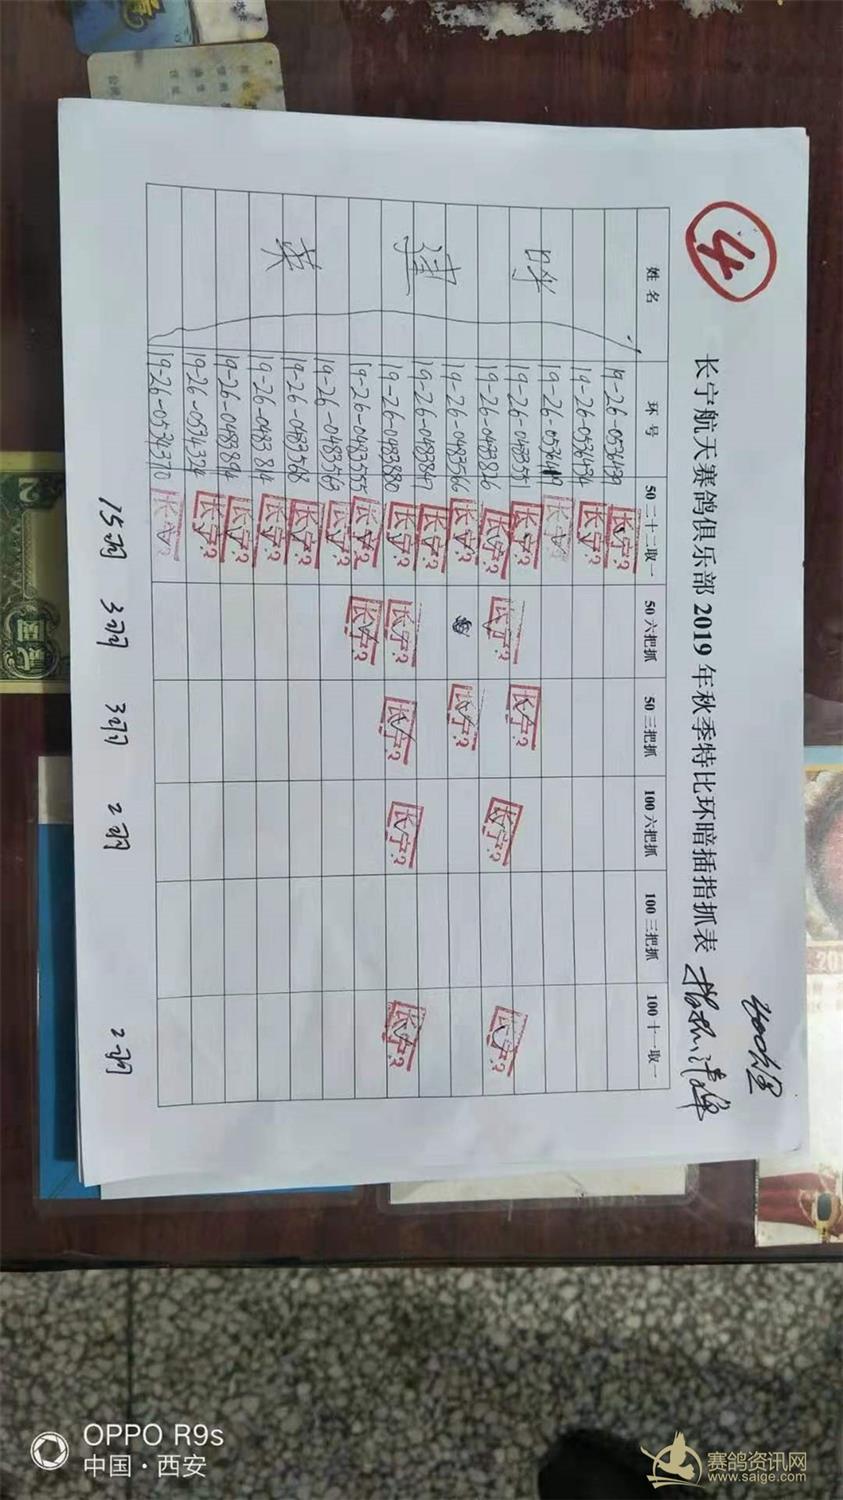 4
长宁航天赛鸽俱乐部 2019 年秋季特比环暗插指抓表
姓 名 环 号 50 二十二取一 50 六把抓 50 三把抓 100 六把抓 100 三把抓 100 十一取一
建 英
19-26-0536499 长宁?
19-26-0536494 长宁?
长宁?
19-26-0483551 长宁? 长宁?
19-26-0483826 长宁? 长宁? 长宁? 长宁?
19-26-0483566 长宁? 长宁?
19-26-0483847 长宁?
19-26-0483880 长宁? 长宁? 长宁? 长宁? 长宁?
19-26-0483555 长宁? 长宁?
19-26-0483563 长宁?
19-26-0483568 长宁?
19-26-0483814 长宁?
19-26-0483894 长宁?
19-26-0534334 长宁?
19-26-0534370 长宁?
15羽 3羽 3羽 2羽 2羽
OPPO R9s
中国·西安
赛鸽资讯网
www.saige.com